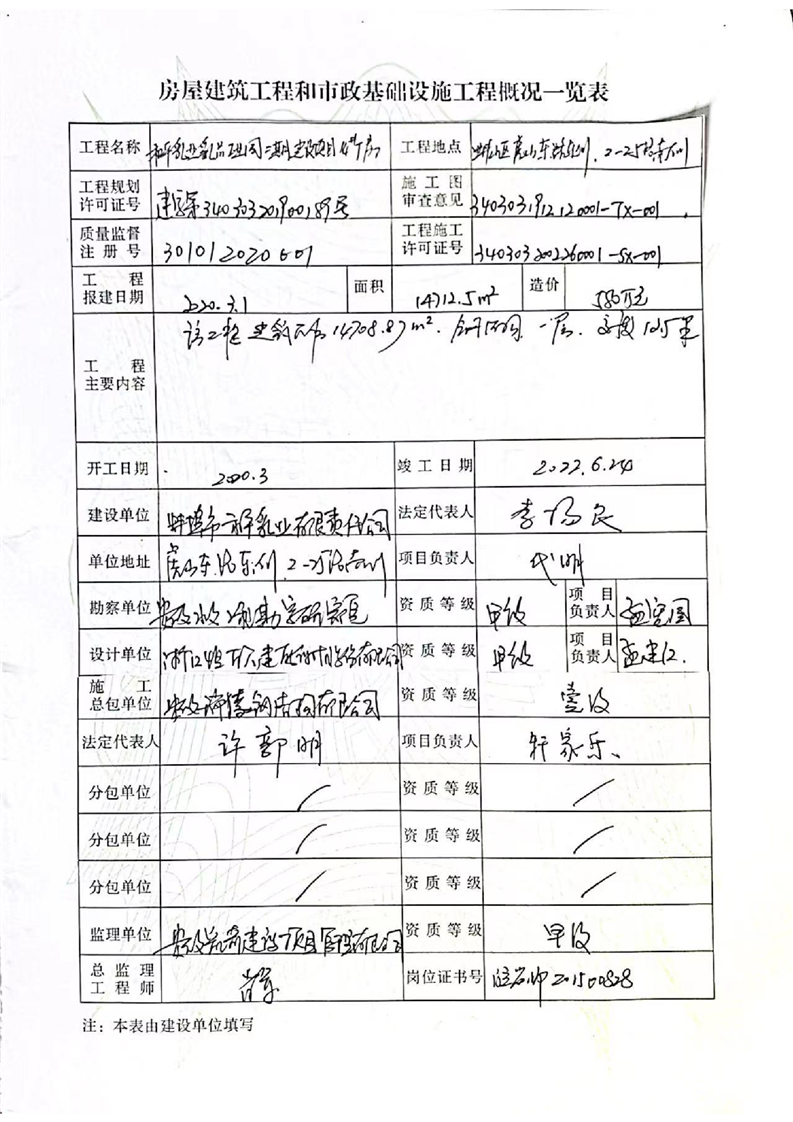 房屋建筑工程和市政基础设施工程概况一览表
工程名称 乳业乳品 公司二期建设项目 工程地点 2-25
工程规划许可证号 建 340303201900189号 施工图审查意见 3403031912120001-TX-001
质量监督注册号 301012020 001 工程施工许可证号 3403032002260001-SX-001
工程报建日期 2020.3.1 面积 14712.5m² 造价 580万元
工程主要内容 该工程建筑面积14708.87m². 钢结构 一层. 高度12.5米
开工日期 2020.3 竣工日期 2022.6.24
建设单位 蚌埠市和平乳业有限责任公司 法定代表人 李 良
单位地址 路东侧. 2- 项目负责人 代明
勘察单位 安徽 勘察研究院 资质等级 甲级 项目负责人 孟 国
设计单位 有限公司 资质等级 甲级 项目负责人 孟建
施工总包单位 安徽 钢结构有限公司 资质等级 壹级
法定代表人 许郭明 项目负责人 轩家乐
分包单位 / 资质等级 /
分包单位 / 资质等级 /
分包单位 / 资质等级 /
监理单位 安徽 建设项目管理有限公司 资质等级 甲级
总监理工程师 岗位证书号 201500828
注：本表由建设单位填写